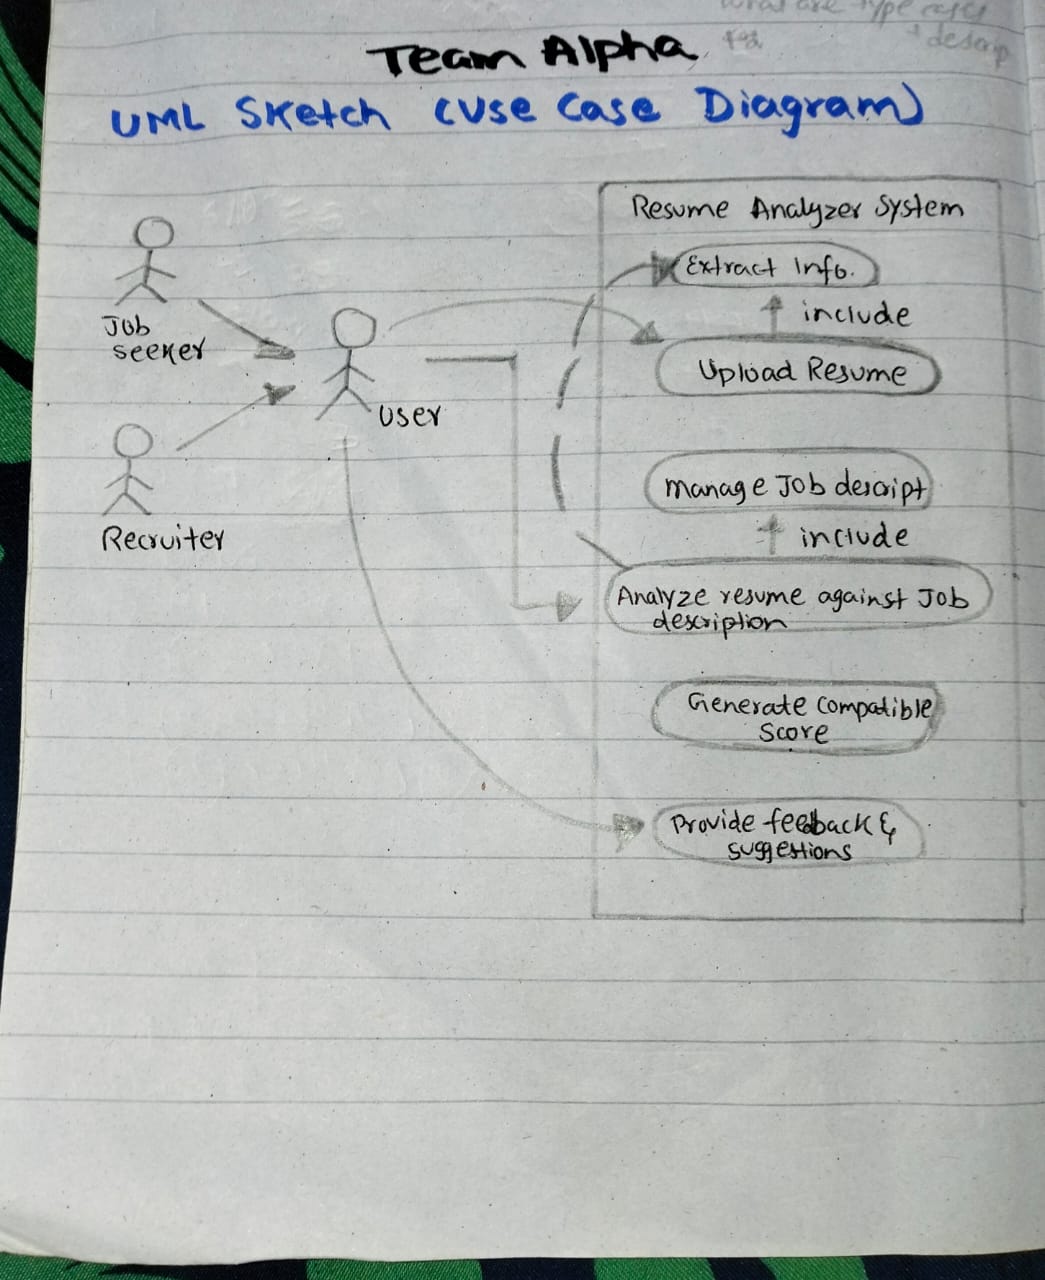 what are type
descrip
Team Alpha
UML Sketch (Use Case Diagram)
Resume Analyzer System
Extract Info.
include
Upload Resume
Job
seeker
User
manage Job descript
include
Recruiter
Analyze resume against Job
description
Generate compatible
score
Provide feedback &
suggestions